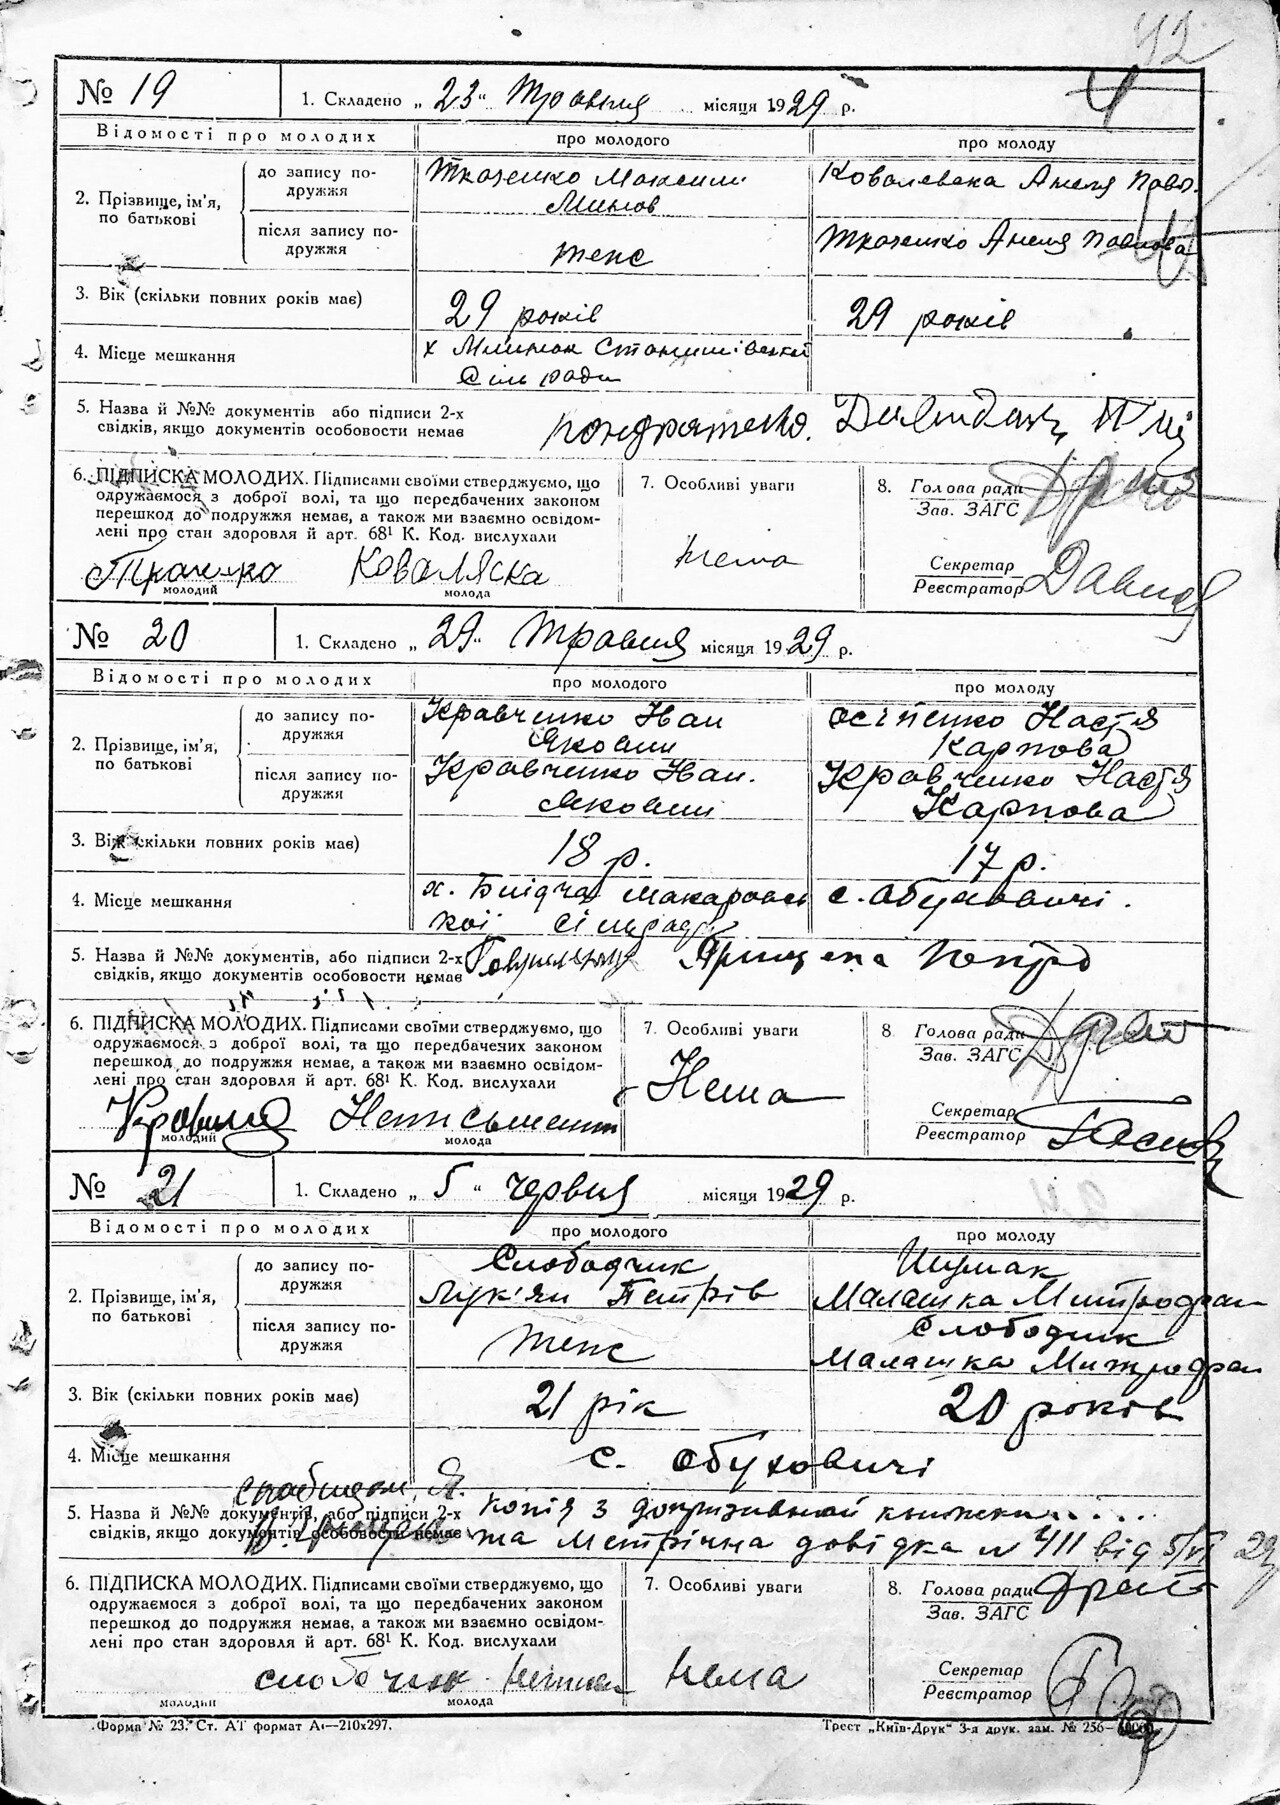 42
№ 19
1. Складено „ 23 “ Травня місяця 1929 р.
Відомості про молодих
про молодого
про молоду
2. Прізвище, ім'я, по батькові
до запису подружжя
Ткаченко Максим
Минов
Ковалевска Анеля Павл.
після запису подружжя
теж
Ткаченко Анеля Павлова
3. Вік (скільки повних років має)
29 років
29 років
4. Місце мешкання
х Млинок Станишівської
Сільради
5. Назва й №№ документів або підписи 2-х
свідків, якщо документів особовости немає
Кондратенко.
6. ПІДПИСКА МОЛОДИХ. Підписами своїми стверджуємо, що
одружаємося з доброї волі, та що передбачених законом
перешкод до подружжя немає, а також ми взаємно освідом-
лені про стан здоровля й арт. 68¹ К. Код. вислухали
Ткаченко Коваляска
молодий
молода
7. Особливі уваги
нема
8. Голова ради
Зав. ЗАГС
Секретар
Реєстратор
№ 20
1. Складено „ 29 “ Травня місяця 1929 р.
Відомості про молодих
про молодого
про молоду
2. Прізвище, ім'я,
по батькові
до запису по-
дружжя
Кравченко Іван
Якович
Осіпенко Настя
Карпова
після запису по-
дружжя
Кравченко Іван.
Якович
Кравченко Настя
Карпова
3. Вік (скільки повних років має)
18 р.
17 р.
4. Місце мешкання
х. Бліdча Макаровсь
кої сільради
с. Обуховичі.
5. Назва й №№ документів, або підписи 2-х
свідків, якщо документів особовости немає
6. ПІДПИСКА МОЛОДИХ. Підписами своїми стверджуємо, що
одружаємося з доброї волі, та що передбачених законом
перешкод до подружжя немає, а також ми взаємно освідом-
лені про стан здоровля й арт. 68¹ К. Код. вислухали
молодий
молода
7. Особливі уваги
Нема
8. Голова ради
Зав. ЗАГС
Секретар
Реєстратор
№ 21
1. Складено „ 5 “ червня місяця 1929 р.
Відомості про молодих
про молодого
про молоду
2. Прізвище, ім'я,
по батькові
до запису по-
дружжя
Слободчик
Лук'ян Петрів
Шумак
Малашка Митрофан
після запису по-
дружжя
теж
Слободчик
Малашка Митрофан
3. Вік (скільки повних років має)
21 рік
20 років
4. Місце мешкання
с. Обуховичі
5. Назва й №№ документів, або підписи 2-х
свідків, якщо документів особовости немає
копія з допризивной книжки.....
та метрічна довідка № 411 від 5/VI 29
6. ПІДПИСКА МОЛОДИХ. Підписами своїми стверджуємо, що
одружаємося з доброї волі, та що передбачених законом
перешкод до подружжя немає, а також ми взаємно освідом-
лені про стан здоровля й арт. 68¹ К. Код. вислухали
слободчик
молодий
молода
7. Особливі уваги
нема
8. Голова ради
Зав. ЗАГС
Секретар
Реєстратор
Форма № 23. Ст. А1 формат А4—210х297.
Трест „Київ-Друк“ 3-я друк. зам. № 256—